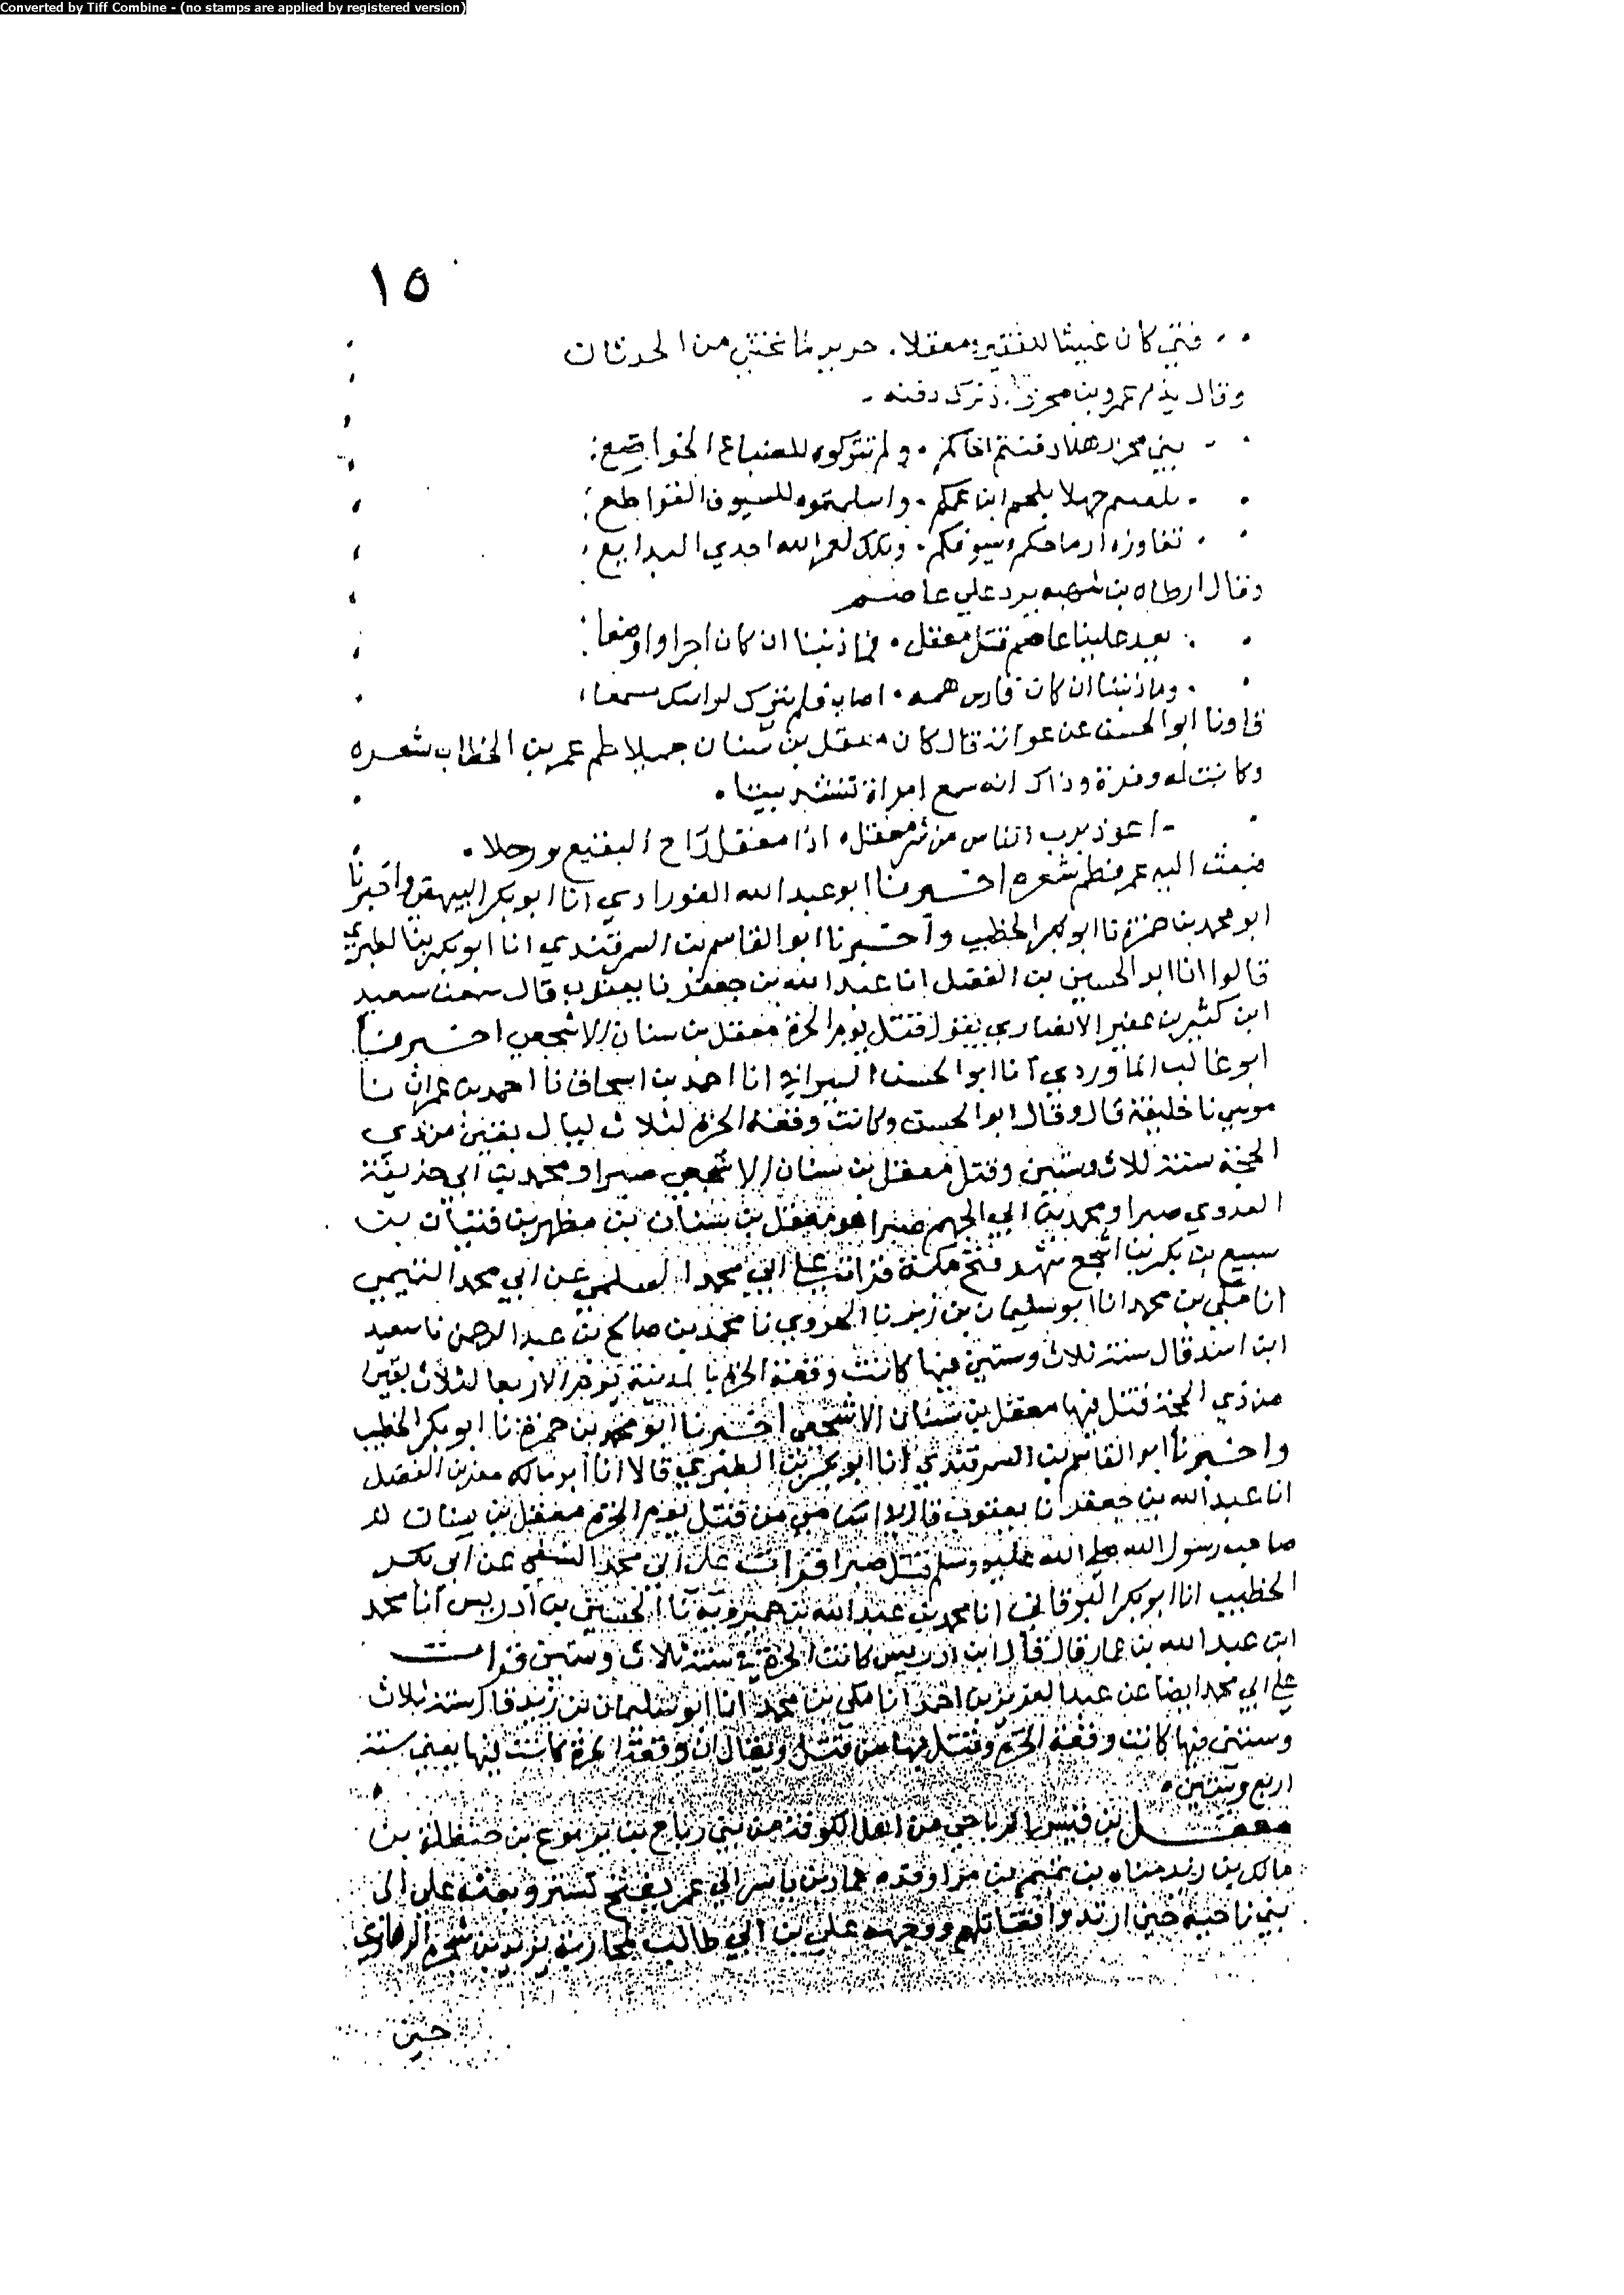 Converted by Tiff Combine - (no stamps are applied by registered version)
١٥
فتي كان غيثا للفقير ومعقلا . من الحدثان
وقال يذم عمرو بن محرز دفنه
بني محرز هلا دفنتم اخاكم . ولم تتركوه للضباع الخواضع
ابن عمكم . واسلمتموه للسيوف القواطع
ارماحكم وسيوفكم . وتلك لعمر الله احدي البدايع
وقال ارطاه بن سهيه يرد علي عاصم
يعيد علينا عاصم قتل معقل . فما ذنبنا ان كان اجرا واوضعا
وما ذنبنا ان كان فارس همه . اصاب فلم يترك لراسك مسمعا
ابو الحسن عن عوانة قال كان معقل بن سنان جميلا طم عمر بن الخطاب شعره
وكانت له وفرة وذاك انه سمع امراة تنشد بيتا .
اعوذ برب الناس من شر معقل . اذا معقل راح البقيع مرجلا .
فبعث اليه عمر فطم شعره اخبرنا ابو عبد الله الفوراوي انا ابو بكر البيهقي واخبرنا
ابو محمد بن حمزة نا ابو بكر الخطيب واخبرنا ابو القاسم بن السمرقندي انا ابو بكر بن الطبري
قالوا انا ابو الحسين بن الفضل انا عبد الله بن جعفر نا يعقوب قال سمعت سعيد
ابن كثير بن عفير الانصاري يقول قتل يوم الحرة معقل بن سنان الاشجعي اخبرنا
ابو غالب الماوردي انا ابو الحسن السيرافي انا احمد بن اسحاق نا احمد بن عمران نا
موسي نا خليفة قال وقال ابو الحسن وكانت وقعة الحرة لثلاث ليال بقين من ذي
الحجة سنة ثلاث وستين وقتل معقل بن سنان الاشجعي صبرا ومحمد بن ابي حذيفة
العدوي صبرا ومحمد بن ابي الجهم صبرا هو معقل بن سنان بن مظهر بن فتيان بن
سبيع بن بكر بن اشجع شهد فتح مكة قرات علي ابي محمد السلمي عن ابي محمد التميمي
انا مكي بن محمد انا ابو سليمان بن زبر نا الهروي نا محمد بن صالح بن عبد الرحمن نا سعيد
ابن اسد قال سنة ثلاث وستين فيها كانت وقعة الحرة بالمدينة يوم الاربعا لثلاث بقين
من ذي الحجة قتل فيها معقل بن سنان الاشجعي اخبرنا ابو محمد بن حمزة نا ابو بكر الخطيب
واخبرنا ابو القاسم بن السمرقندي انا ابو بكر بن الطبري قالا انا ابو بن الفضل
انا عبد الله بن جعفر نا يعقوب قال من قتل يوم الحرة معقل بن سنان
صاحب رسول الله صلي الله عليه وسلم قتل صبرا قرات علي ابي محمد السلمي عن ابي بكر
الخطيب انا ابو بكر البرقاني انا محمد بن عبد الله بن خميرويه نا الحسين بن ادريس انا محمد
ابن عبد الله بن عمار قال قال ابن ادريس كانت الحرة في سنة ثلاث وستين قرات
علي ابي محمد ايضا عن عبد العزيز بن احمد انا مكي بن محمد انا ابو سليمان بن زبر قال سنة ثلاث
وستين فيها كانت وقعة الحرة وقتل بها من قتل ويقال ان وقعة الحرة كانت فيها يعني سنة
اربع وستين .
معقل بن قيس الرياحي من اهل الكوفة من بني رياح بن يربوع بن حنظلة بن
مالك بن زيد مناه بن تميم بن مر اوفده عمار بن ياسر الي عمر بفتح تستر وبعثه علي الي
بني ناجيه حين ارتدوا فقاتلهم ووجهه علي بن ابي طالب لمحاربة يزيد بن شجرة الرهاوي
حين